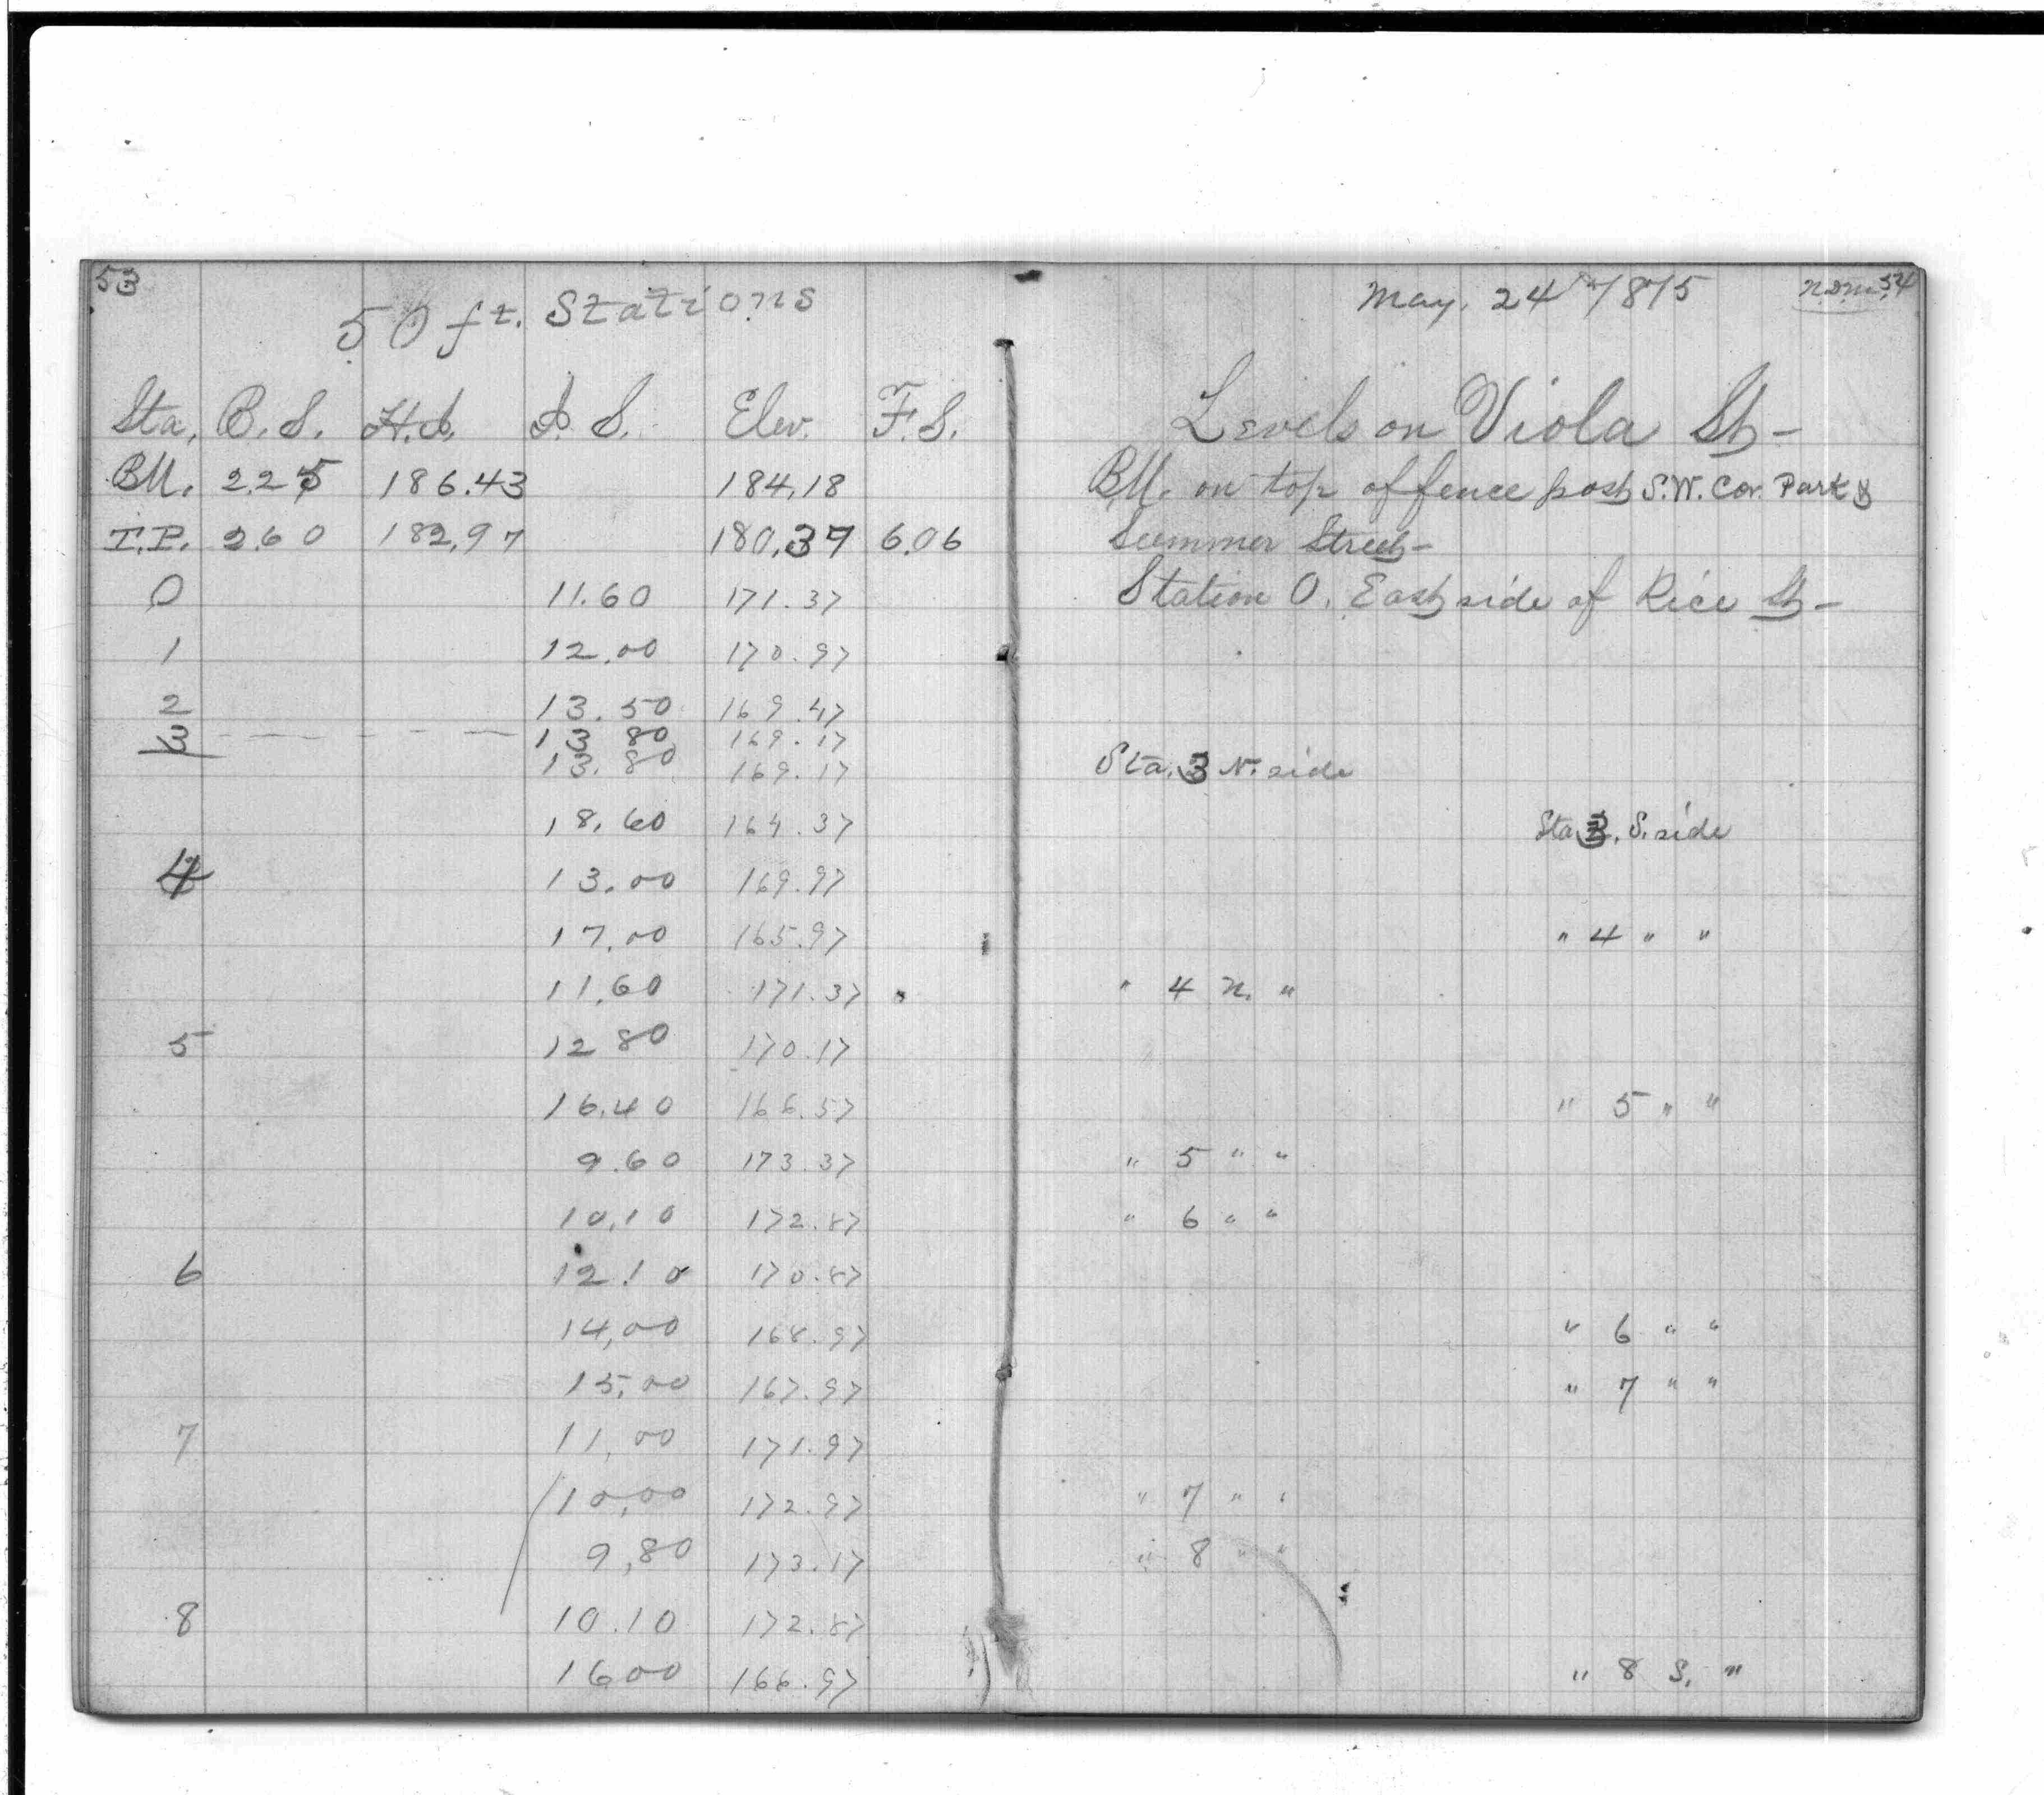 53
50 ft. Stations
Sta. B.S. H.I. I.S. Elev. F.S.
B.M. 2.25 186.43 184.18
T.P. 2.60 182.97 180.37 6.06
0 11.60 171.37
1 12.00 170.97
2 13.50 169.47
3 13 80 169.17
13.80 169.17
18.60 164.37
4 13.00 169.97
17.00 165.97
11.60 171.37
5 12 80 170.17
16.40 166.57
9.60 173.37
10.10 172.87
6 12.10 170.87
14.00 168.97
15.00 167.97
7 11.00 171.97
10.00 172.97
9.80 173.17
8 10.10 172.87
16 00 166.97
May. 24th 1875 54
Levels on Viola St-
B.M. on top of fence post S.W. Cor. Park &
Summer Street-
Station 0. East side of Rice St-
Sta. 3 N. side
Sta 3. S. side
" 4 " "
" 4 N. "
" 5 " "
" 5 " "
" 6 " "
" 6 " "
" 7 " "
" 7 " "
" 8 " "
" 8 S. "